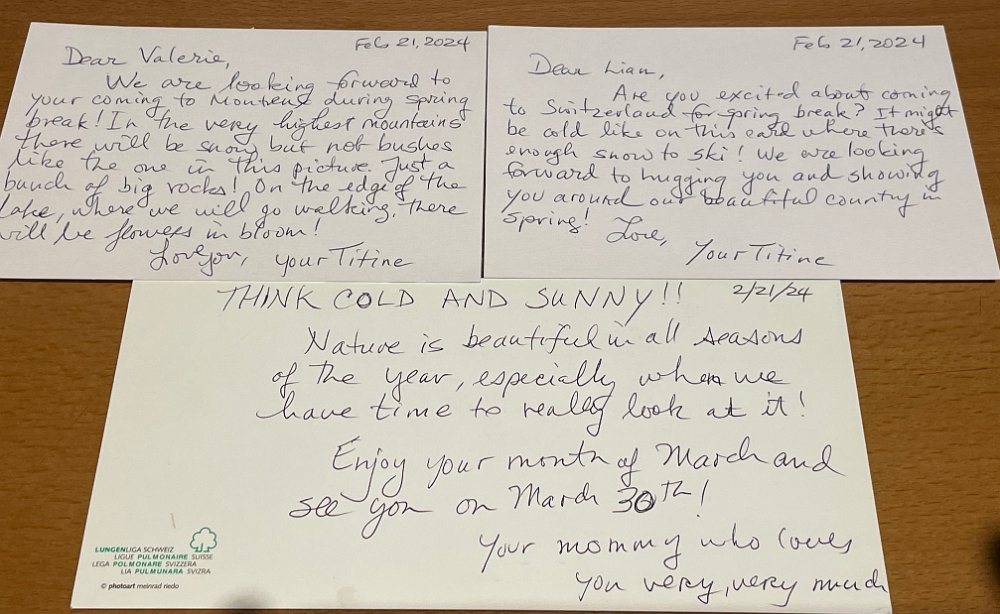 Feb 21, 2024
Dear Valerie,
We are looking forward to
your coming to Montreux during spring
break! In the very highest mountains
there will be snow but not bushes
like the one in this picture. Just a
bunch of big rocks! On the edge of the
lake, where we will go walking, there
will be flowers in bloom!
Love you, your Titine
Feb 21, 2024
Dear Lian,
Are you excited about coming
to Switzerland for spring break? It might
be cold like on this card where there's
enough snow to ski! We are looking
forward to hugging you and showing
you around our beautiful country in
spring!
Love,
Your Titine
THINK COLD AND SUNNY!!
2/21/24
Nature is beautiful in all seasons
of the year, especially when we
have time to really look at it!
Enjoy your month of March and
see you on March 30th!
Your mommy who loves
you very, very much
LUNGENLIGA SCHWEIZ
LIGUE PULMONAIRE SUISSE
LEGA POLMONARE SVIZZERA
LIA PULMUNARA SVIZRA
© photoart meinrad riedo